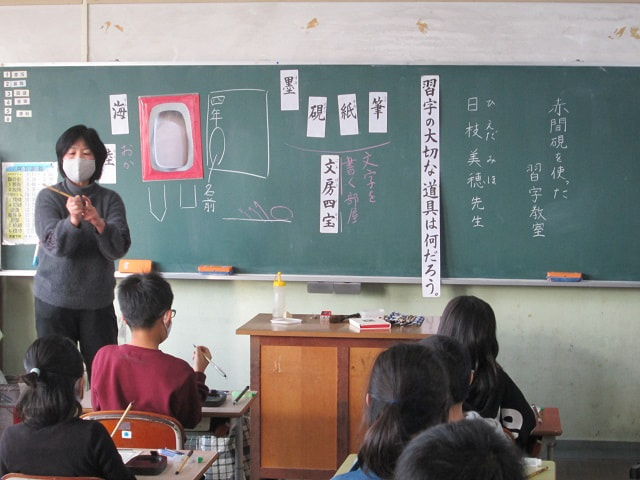 赤間硯を使った
習字教室
ひえだ みほ
日枝美穂先生
習字の大切な道具は何だろう。
筆
紙
硯
墨
文字を
書く部屋
文房四宝
四年
名前
海
おか